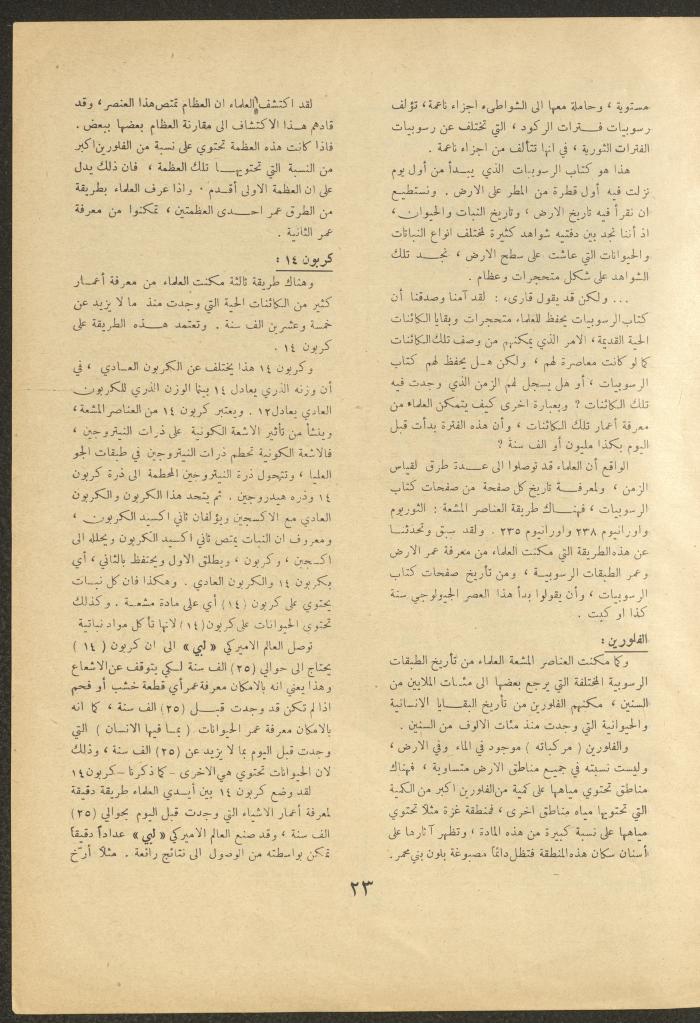 مستوية ، وحاملة معها الى الشواطىء اجزاء ناعمة، تؤلف
رسوبيات فـترات الركود ، التي تختلف عن رسوبيات
الفترات الثورية ، في انها تتألف من اجزاء ناعمة .
هذا هو كتاب الرسوبيات الذي يبـدأ من أول يوم
نزلت فيه أول قطرة من المطر على الارض . ونستطيع
ان نقرأ فيه تاريخ الارض ، وتاريخ النبات والحيوان،
اذ أننا نجد بين دفتيه شواهد كثيرة لمختلف انواع النباتات
والحيوانات التي عاشت على سطح الارض ، نجـد تلك
الشواهد على شكل متحجرات وعظام .
... ولكن قد يقول قارىء : لقد آمنا وصدقنا أن
كتاب الرسوبيات يحفظ للعلماء متحجرات وبقايا الكائنات
الحية القديمة، الامر الذي يمكنهم من وصف تلك الكائنات
كما لو كانت معاصرة لهم ، ولكن هـل يحفظ لهم كتاب
الرسوبيات ، أو هل يسجل لهم الزمن الذي وجدت فيه
تلك الكائنات ؟ وبعبارة اخرى كيف يتمكن العلماء من
معرفة أعمار تلك الكائنات ، وأن هذه الفترة بدأت قبل
اليوم بكذا مليون أو الف سنة ؟
الواقع أن العلماء قد توصلوا الى عـدة طرق لقياس
الزمن ، ولمعرفـة تاريخ كل صفحة من صفحات كتاب
الرسوبيات ، فهنـاك طريقة العناصر المشعة : الثوريوم
واورانيوم ٢٣٨ واورانيوم ٢٣٥ . ولقد سبق وتحدثنـا
عن هذه الطريقة التي مكنت العلماء من معرفة عمر الارض
وعمر الطبقات الرسوبيـة ، ومن تأريخ صفحات كتاب
الرسوبيات ، وأن يقولوا بدأ هذا العصر الجيولوجي سنة
كذا او كيت .
الفلورين :
وكما مكنت العناصر المشعة العلماء من تأريخ الطبقات
الرسوبية المختلفة التي يرجع بعضها الى مئـات الملايين من
السنين ، مكنهم الفلورين من تأريخ البقـايا الانسانية
والحيوانية التي وجدت منذ مئات الالوف من السنين .
والفلورين ( مركباته ) موجود في الماء وفي الارض ،
وليست نسبته في جميـع مناطق الارض متساوية ، فهناك
مناطق تحتوي مياهها على كمية من الفلورين اكبر من الكمية
التي تحتويها مياه مناطق اخرى، فمنطقة غزة مثلاً تحتوي
مياهها على نسبة كبيرة من هذه المادة ، وتظهر آثارها على
أسنان سكان هذه المنطقة فتظل دائماً مصبوغة بلون بني محمر.
لقد اكتشف العلماء ان العظام تمتص هذا العنصر ، وقد
قادهم هـذا الاكتشاف الى مقارنة العظام بعضها ببعض .
فاذا كانت هذه العظمة تحتوي على نسبة من الفلورين اكبر
من النسبة التي تحتويهـا تلك العظمة ، فان ذلك يدل
على ان العظمة الاولى أقـدم . واذا عرف العلماء بطريقة
من الطرق عمر احـدى العظمتين ، تمكنوا من معرفة
عمر الثانية .
كربون ١٤ :
وهناك طريقة ثالثة مكنت العلماء من معرفة أعمـار
كثير من الكائنات الحية التي وجدت منذ ما لا يزيد عن
خمسة وعشرين الف سنة . وتعتمد هـذه الطريقة على
كربون ١٤ .
وكربون ١٤ هذا يختلف عن الكربون العـادي ، في
أن وزنه الذري يعادل ١٤ بينما الوزن الذري للكربون
العادي يعادل ١٢ . ويعتبر كربون ١٤ من العناصر المشعة،
وينشأ من تأثير الاشعة الكونية على ذرات النيتروجين ،
فالاشعة الكونية تحطم ذرات النيتروجين في طبقات الجو
العليا ، وتتحول ذرة النيتروجين المحطمة الى ذرة كربون
١٤ وذره هيدروجين . ثم يتحد هذا الكربون والكربون
العادي مع الاكسجين ويؤلفان ثاني اكسيد الكربون ،
ومعروف ان النبات يمتص ثاني اكسيد الكربون ويحلله الى
اكسجين ، وكربون ، ويطلق الاول ويحتفظ بالثاني ، أي
بكربون ١٤ والكربون العادي . وهكذا فان كل نبـات
يحتوي على كربون (١٤) أي على مادة مشعـة . وكذلك
تحتوي الحيوانات على كربون (١٤) لانها تأكل مواد نباتية
توصل العالم الاميركي « لبي » الى ان كربون ( ١٤ )
يحتاج الى حوالي (٢٥) الف سنة لكي يتوقف عن الاشعاع
وهذا يعني انه بالامكان معرفة عمر أي قطعة خشب أو فحم
اذا لم تكن قد وجدت قبـل (٢٥) الف سنة ، كما انه
بالامكان معرفة عمر الحيوانات ( بمـا فيها الانسان ) التي
وجدت قبل اليوم بما لا يزيد عن (٢٥) الف سنة ، وذلك
لان الحيوانات تحتوي هي الاخرى - كما ذكرنا - كربون ١٤
لقد وضع كربون ١٤ بين أيـدي العلماء طريقة دقيقة
لمعرفة أعمار الاشياء التي وجدت قبل اليوم بحوالي (٢٥)
الف سنة ، وقد صنع العالم الاميركي « لبي » عداداً دقيقاً
تمكن بواسطته من الوصول الى نتائج رائعة . مثلاً أرّخ
٢٣